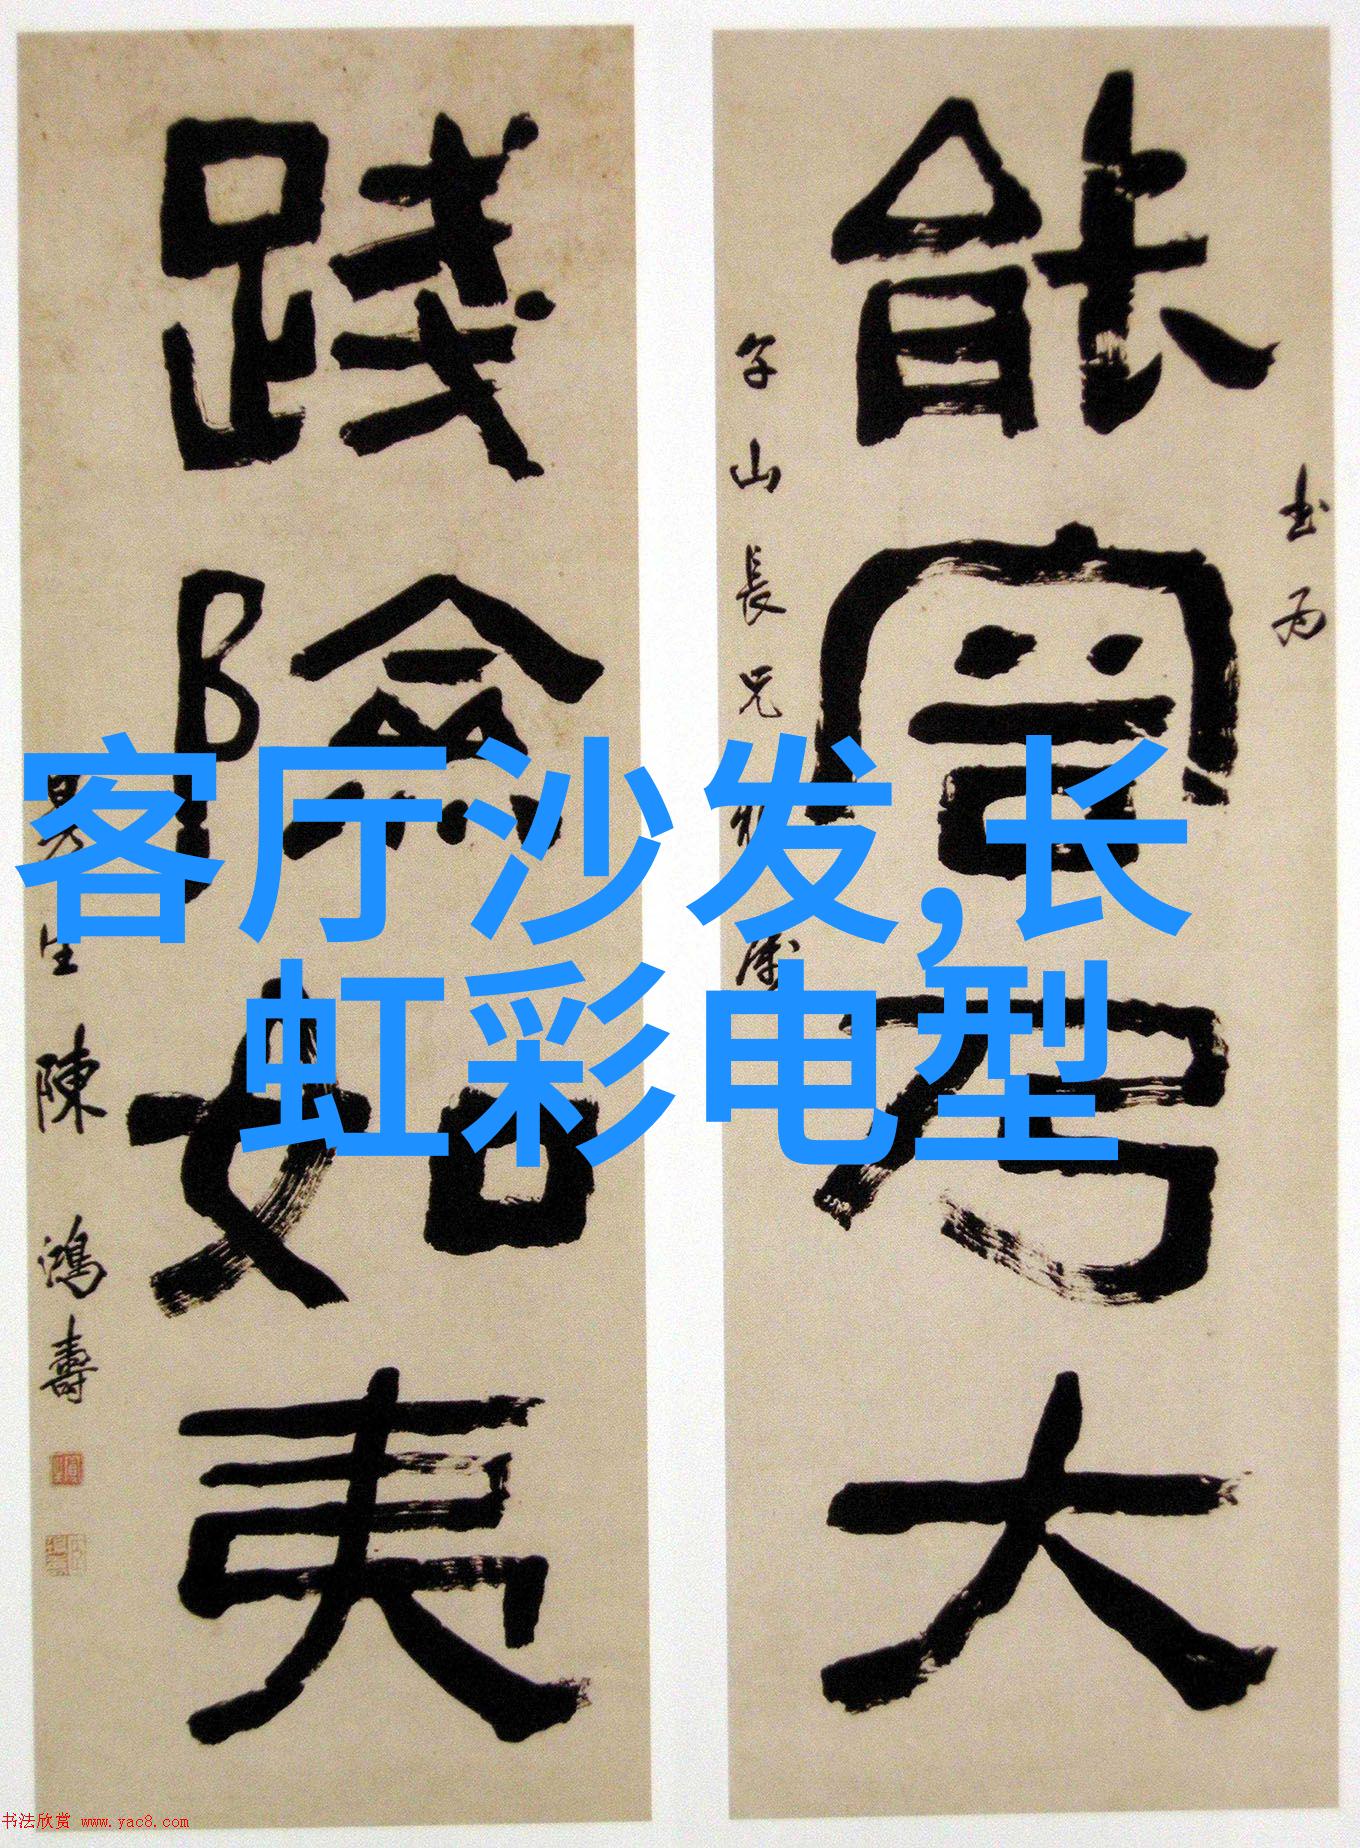 能容乃大
山長兄
踐險如夷
生陳鴻壽
客厅沙发,长
虹彩电型
书法欣赏 www.yac8.com